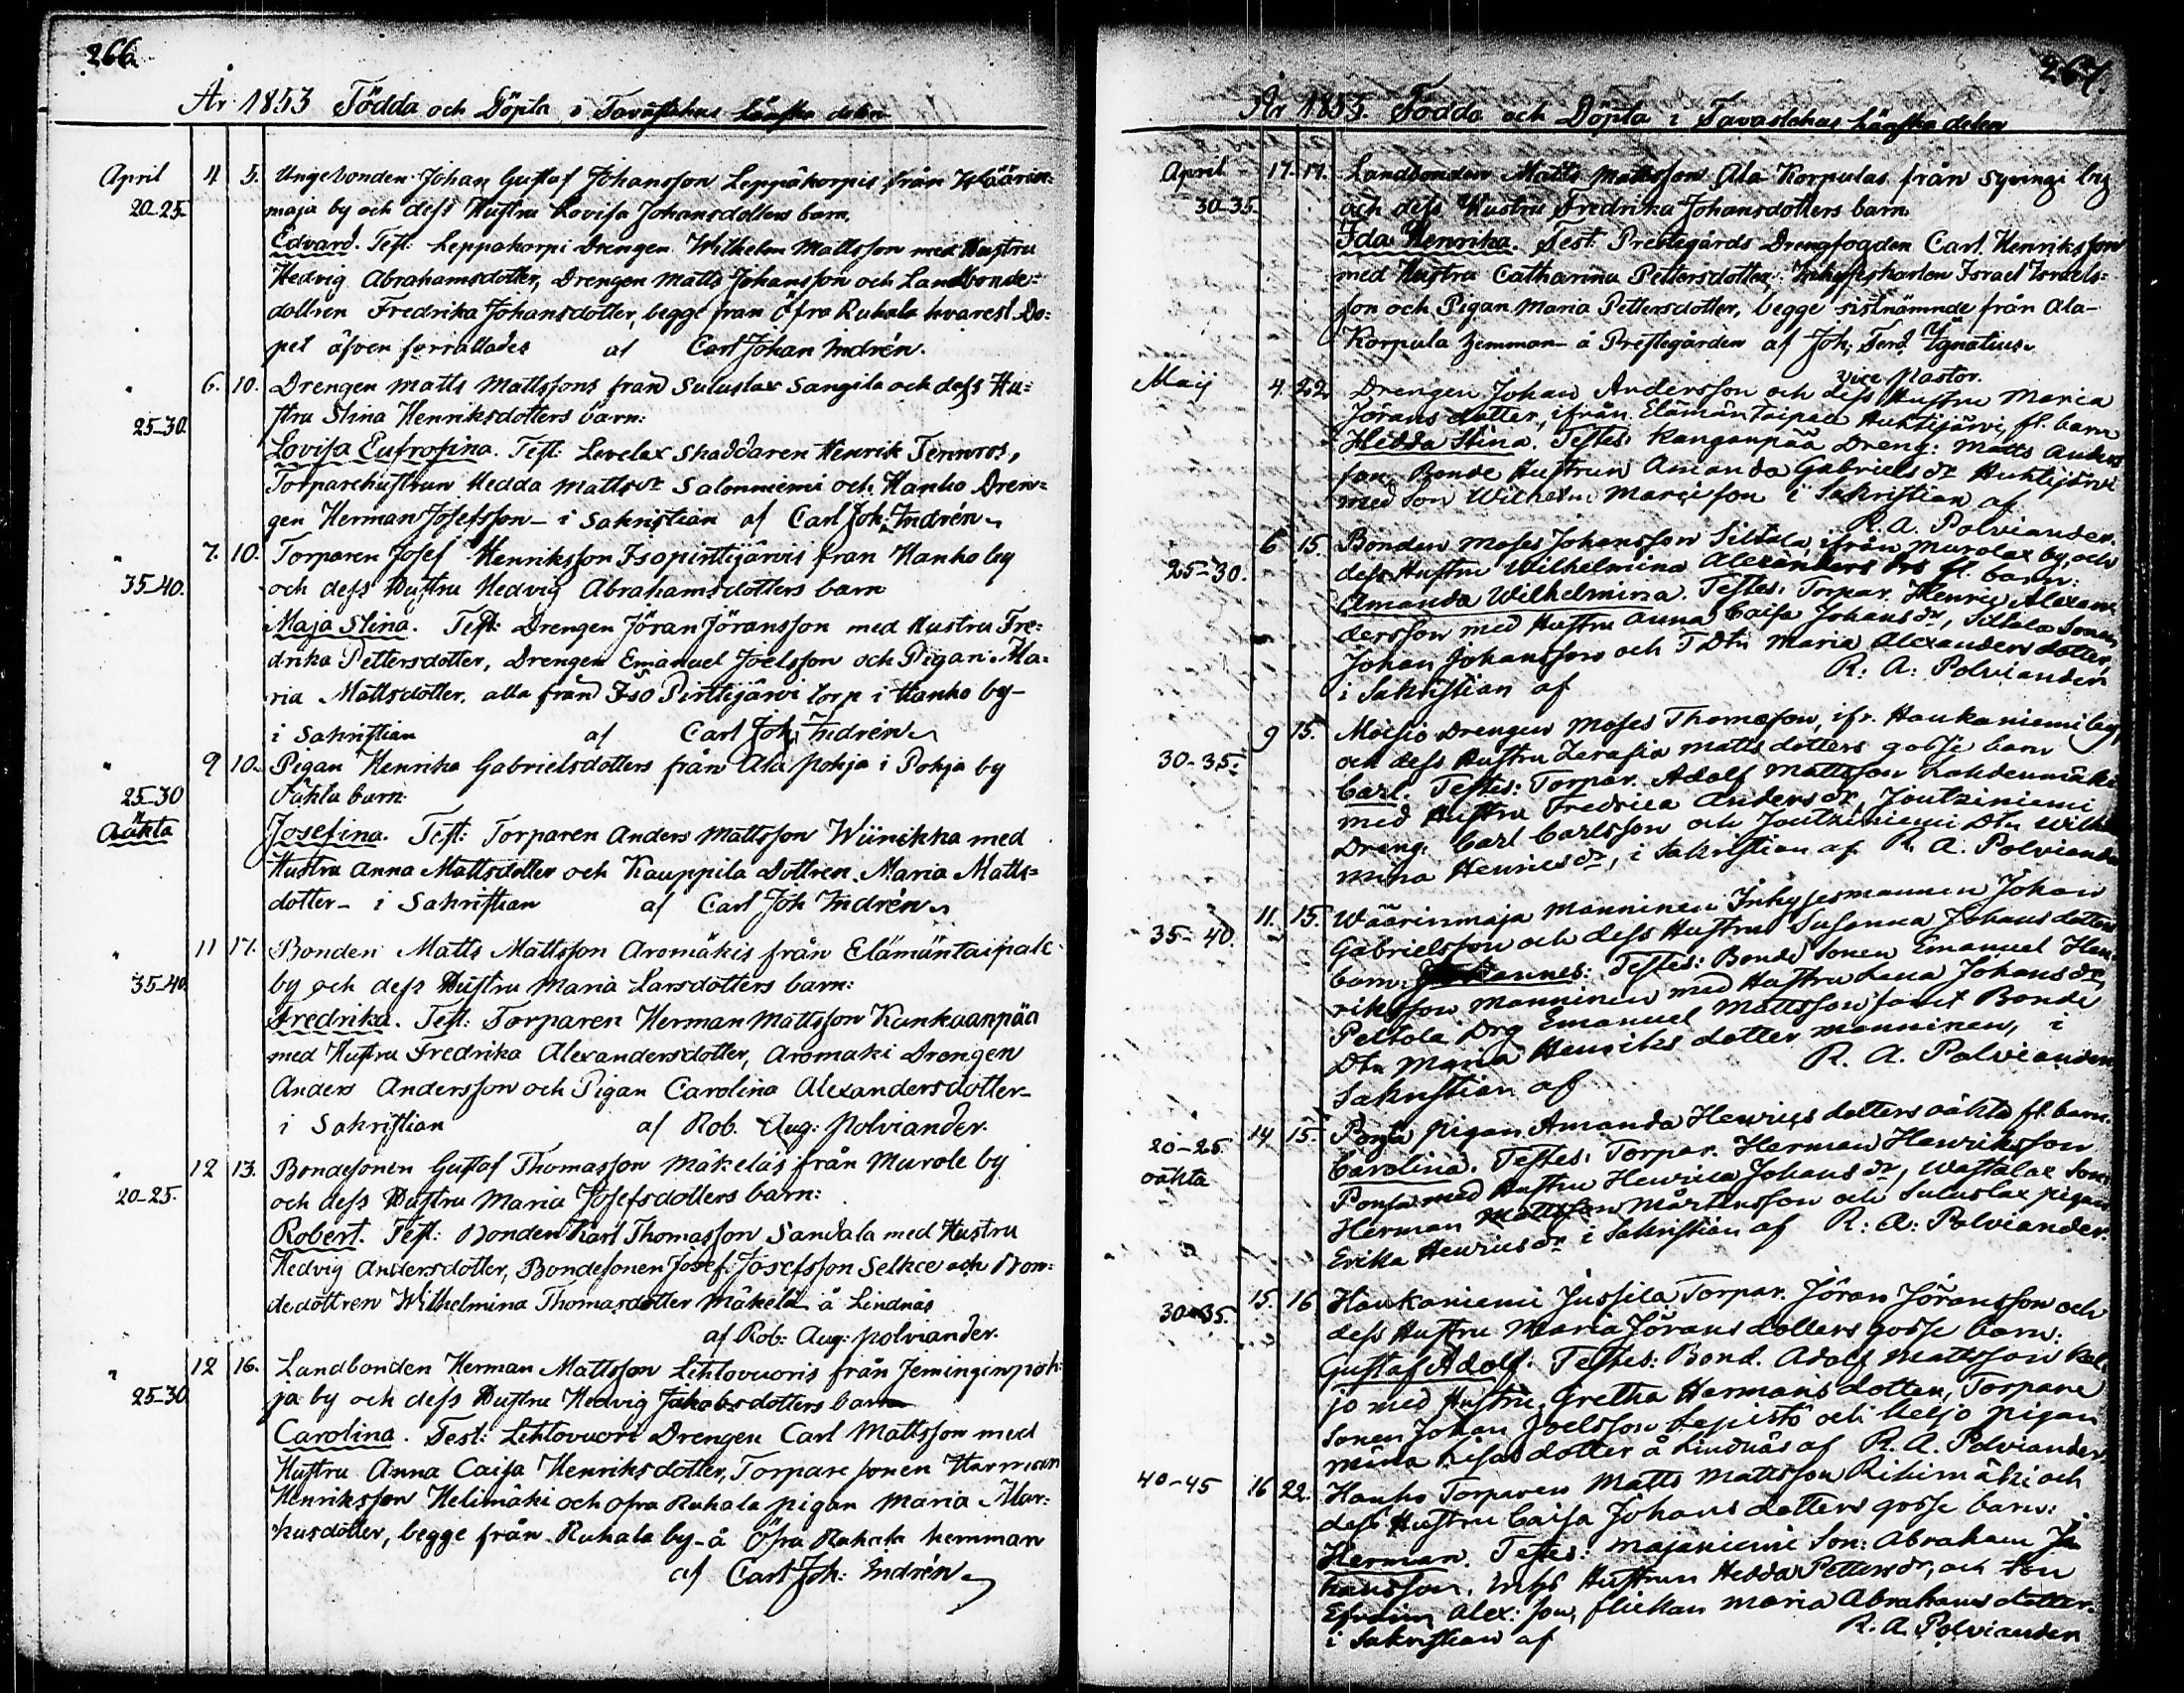 266.
År 1853 Födda och Döpta i Tavastehus Länska delen
April 4 5. Ungebonden Johan Gustaf Johansson Leppäkorpis från Wäärin=
20-25- maja by och dess Hustru Lovisa Johansdotters barn,
Edvard. Test: Leppäkorpi Drengen Wilhelm Mattsson med Hustru
Hedvig Abrahamsdotter, Drengen Matts Johansson och Landbonde=
dottren Fredrika Johansdotter, begge från Öfra Ruhala hvarest Do=
pet äfven förrättades af Carl Johan Indrén.
" 6. 10. Drengen Matts Mattssons från Suluslax Sangila och dess Hu=
25-30. stru Stina Henriksdotters barn:
Lovisa Eufrosina. Test: Levelax Skaddaren Henrik Tennros,
Torparehustrun Hedda Mattsdr Salonniemi och Hanho Dren=
gen Herman Josefsson - i Sakristian af Carl Joh: Indrén
" 7. 10. Torparen Josef Henriksson Isopirttijärvis från Hanho by
35-40. och dess Hustru Hedvig Abrahamsdotters barn
Maja Stina. Test: Drengen Jöran Jöransson med Hustru Fre=
drika Pettersdotter, Drengen Emanuel Joelsson och Pigan Ma=
ria Mattsdotter, alla från Iso Pirttijärvi torp i Hanho by -
i Sakristian af Carl Joh: Indrén
" 9 10. Pigan Henrika Gabrielsdotters från Ala pohja i Pohja by
25-30 Oäkta barn:
Oäkta Josefina. Test: Torparen Anders Mattsson Wiinikka med
Hustru Anna Mattsdotter och Kauppila Dottren Maria Matts=
dotter - i Sakristian af Carl Joh Indrén
" 11 17. Bonden Matts Mattsson Aromäkis från Elämäntaipale
35-40 by och dess Hustru Maria Larsdotters barn:
Fredrika. Test: Torparen Herman Mattsson Kankaanpää
med Hustru Fredrika Alexandersdotter, Aromaki Drengen
Anders Andersson och Pigan Carolina Alexandersdotter -
i Sakristian af Rob. Aug: Polviander.
" 12 13. Bondesonen Gustaf Thomasson Mäkeläs från Murole by
20-25. och dess Hustru Maria Josefsdotters barn:
Robert. Test: Bonden Karl Thomasson Sandala med Hustru
Hedvig Andersdotter, Bondesonen Josef Josefsson Selkee och Bon=
dedottren Wilhelmina Thomasdotter Mäkelä å Lindnäs
af Rob: Aug: Polviander.
" 12 16. Landbonden Herman Mattsson Lehtovuoris från Jeminginpoh=
25-30 ja by och dess Hustru Hedvig Jakobsdotters barn
Carolina. Test: Lehtovuori Drengen Carl Mattsson med
Hustru Anna Caisa Henriksdotter, Torpare sonen Herman
Henriksson Helimäki och ofra Ruhala pigan Maria Mar=
kusdotter, begge från Ruhala by - å Öfra Ruhala hemman
af Carl Joh: Indrén
267.
År 1853. Födda och Döpta i Tavastehus Länska delen
April 17. 17. Landbonden Matts Mattsson Ala Korpulas från Syvingi by
30-35. och dess Hustru Fredrika Johansdotters barn
Ida Henrika. Test: Prestegårds Drengfogden Carl Henriksson
med Hustru Catharina Pettersdotter, Inhyseskarlen Israel Israels=
son och Pigan Maria Pettersdotter, begge sistnämnde från Ala-
Korpula hemman - å Prestegården af Joh: Ferd. Ignatius
vice Pastor.
Maij 4. 22 Drengen Johan Andersson och dess Hustru Maria
Jörans dotter, ifrån Elämäntaipale Huhtijärvi, fl. barn
Hedda Stina. Testes: Kanganpää Dreng: Matts Anders
son, Bonde Hustrun Amanda Gabriels dr Huhtijärvi
med Son Wilhelm Marcisson i Sakristian af
R. A. Polviander.
6 15. Bonden Moses Johansson Siltala, ifrån Murolax by, och
25-30. dess Hustru Wilhelmina Alexanders drs fl. barn:
Amanda Wilhelmina. Testes: Torpar. Henric Alexan
dersson med Hustru Anna Caisa Johans dr, Siltala Sonen
Johan Johansson och T Dtr Maria Alexanders dotter,
i Sakristian af R: A: Polviander
9 15. Moisio Drengen Moses Thomasson, ifr. Haukaniemi by,
30-35. och dess Hustru Serafia Matts dotters gosse barn
Carl. Testes: Torpar. Adolf Mattsson Lahdenmäki
med Hustru Fredrica Anders dr, Joutziniemi
Dreng: Carl Carlsson och Joutziniemi Dtr Wilhel
mina Henrics dr, i Sakristian af R. A. Polviander
11. 15. Wäärinmaja Manninen Inhysesmannen Johan
35-40. Gabrielsson och dess Hustru Susanna Johans dotters
barn: Johannes: Testes: Bonde Sonen Emanuel Hen=
riksson Manninen med Hustru Lena Johans dr,
Peltola Drg Emanuel Mattsson samt Bonde
Dtr Maria Henriks dotter Manninen, i
Sakristian af R. A. Polviander
14 15. Ponsa pigan Amanda Henrics dotters oäkta fl. barn.
20-25 Carolina. Testes: Torpar. Herman Henriksson
oäkta Ponsa med Hustru Henrica Johans dr, Wastalax Son:
Herman Mårtensson och Suluslax pigan
Erika Henrics dr i Sakristian af R: A: Polviander.
15. 16 Haukaniemi Jussila Torpar. Jöran Jöransson och
30-35. dess Hustru Maria Jörans dotters gosse barn:
Gustaf Adolf. Testes: Bond. Adolf Mattsson Kel
jo med Hustru Gretha Hermans dotter, Torpare
Sonen Johan Joelsson Lepistö och Keljo pigan
Mina Lisas dotter å Lindnäs af R. A. Polviander
40-45 16 22. Hanho Torparen Matts Mattsson Rihimäki och
dess Hustru Caisa Johans dotters gosse barn:
Herman. Testes: Majaniemi Son: Abraham Jo
hansson, Inhs Hustrun Hedda Petters dr, och Son
Efraim Alex: son, flickan Maria Abrahams dotter.
i Sakristian af R. A. Polviander